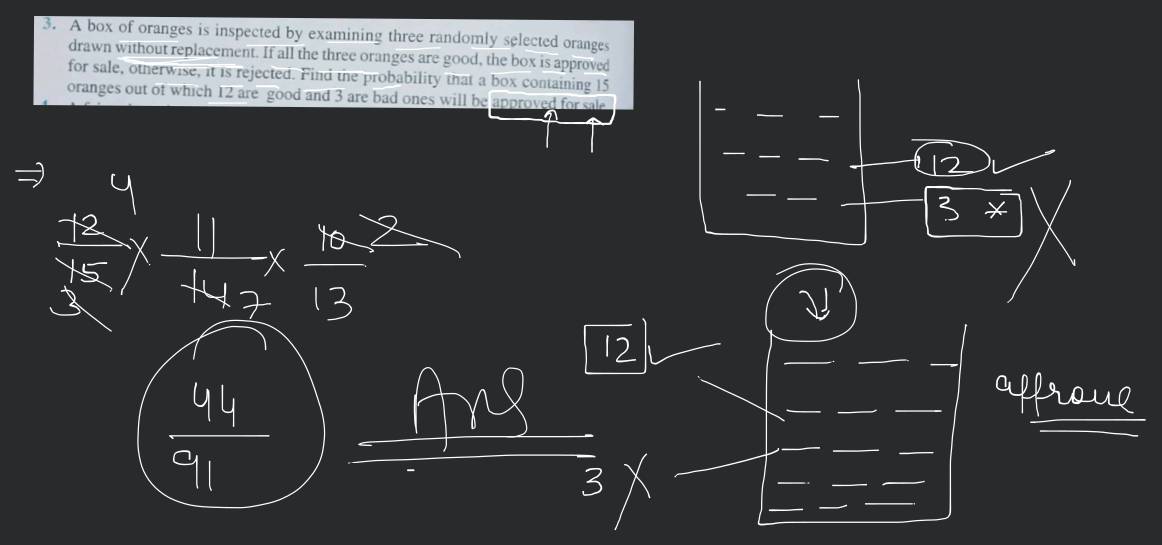 3. A box of oranges is inspected by examining three randomly selected oranges
drawn without replacement. If all the three oranges are good, the box is approved
for sale, otherwise, it is rejected. Find the probability that a box containing 15
oranges out of which 12 are good and 3 are bad ones will be approved for sale.
12
3 *
⇒
4
12/15 × 11/14 × 10/13
2
3
7
44/91
Ans
12
3
approve